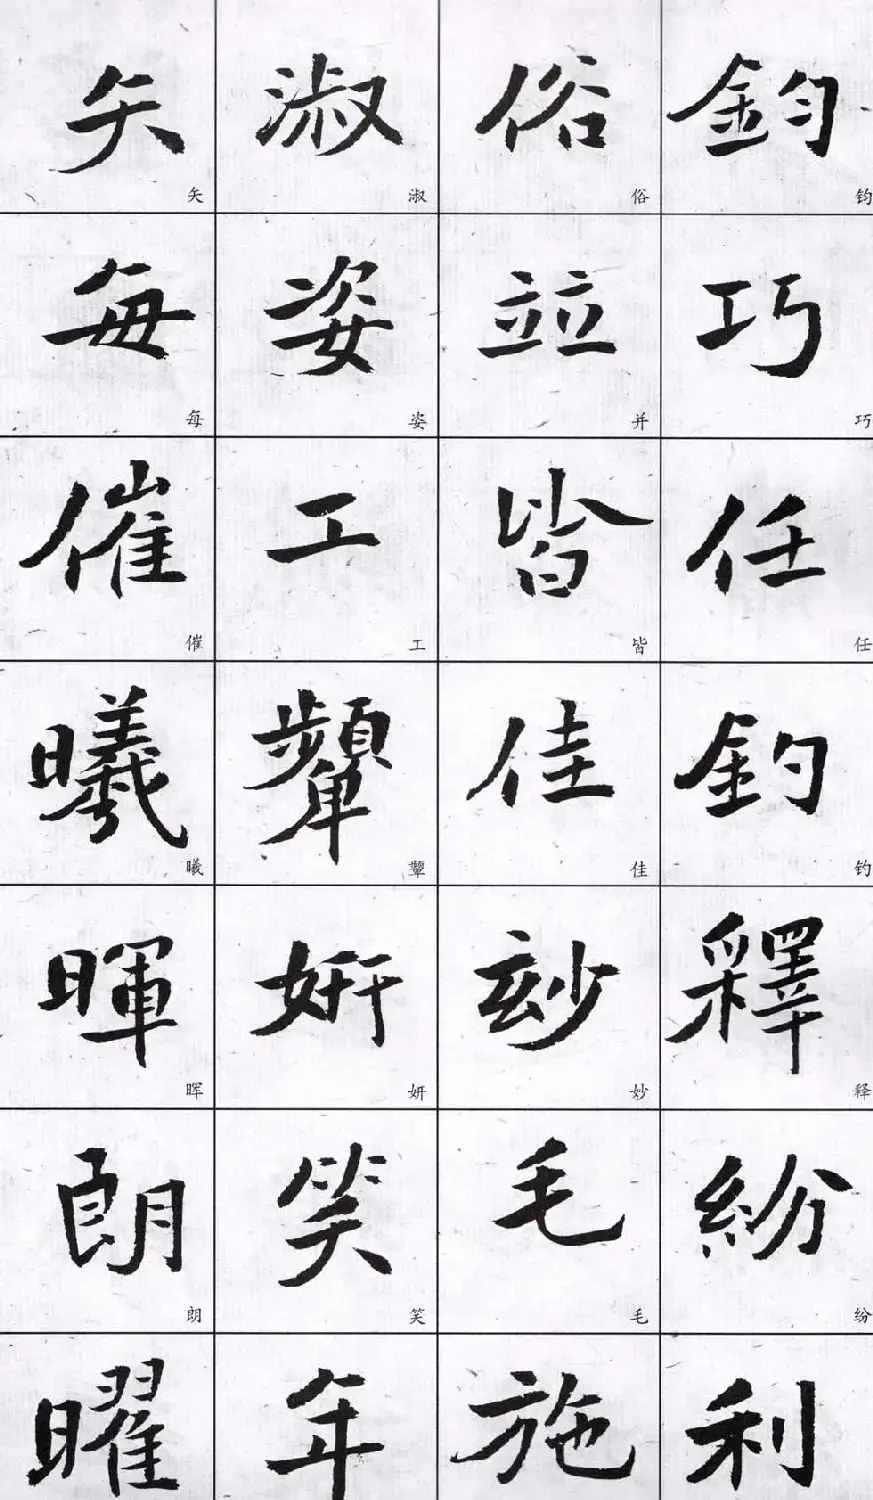 鈞巧任釣釋紛利
钧巧任钓释纷
俗並皆佳玅毛施
俗并皆佳妙毛
淑姿工顰妍笑年
淑姿工颦妍笑
矢每催曦暉朗曜
矢每催曦晖朗